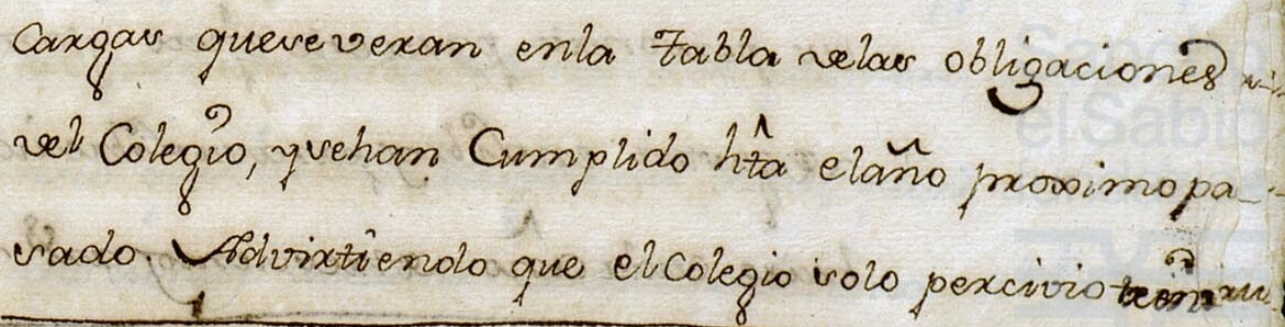 Cargas que se veran en la Tabla de las obligaciones
del Colegio, y se han Cumplido hta el año proximo pa-
sado. Advirtiendo que el Colegio solo percivio
Sancho
el Sabio